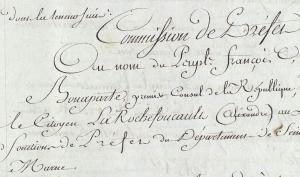 dont la teneur suit:
Commission de Préfet
Au nom du Peuple françois,
Bonaparte, premier Consul de la République,
le Citoyen La Rochefoucault (Alexandre) aux
fonctions de Préfet du Département de Seine
& Marne